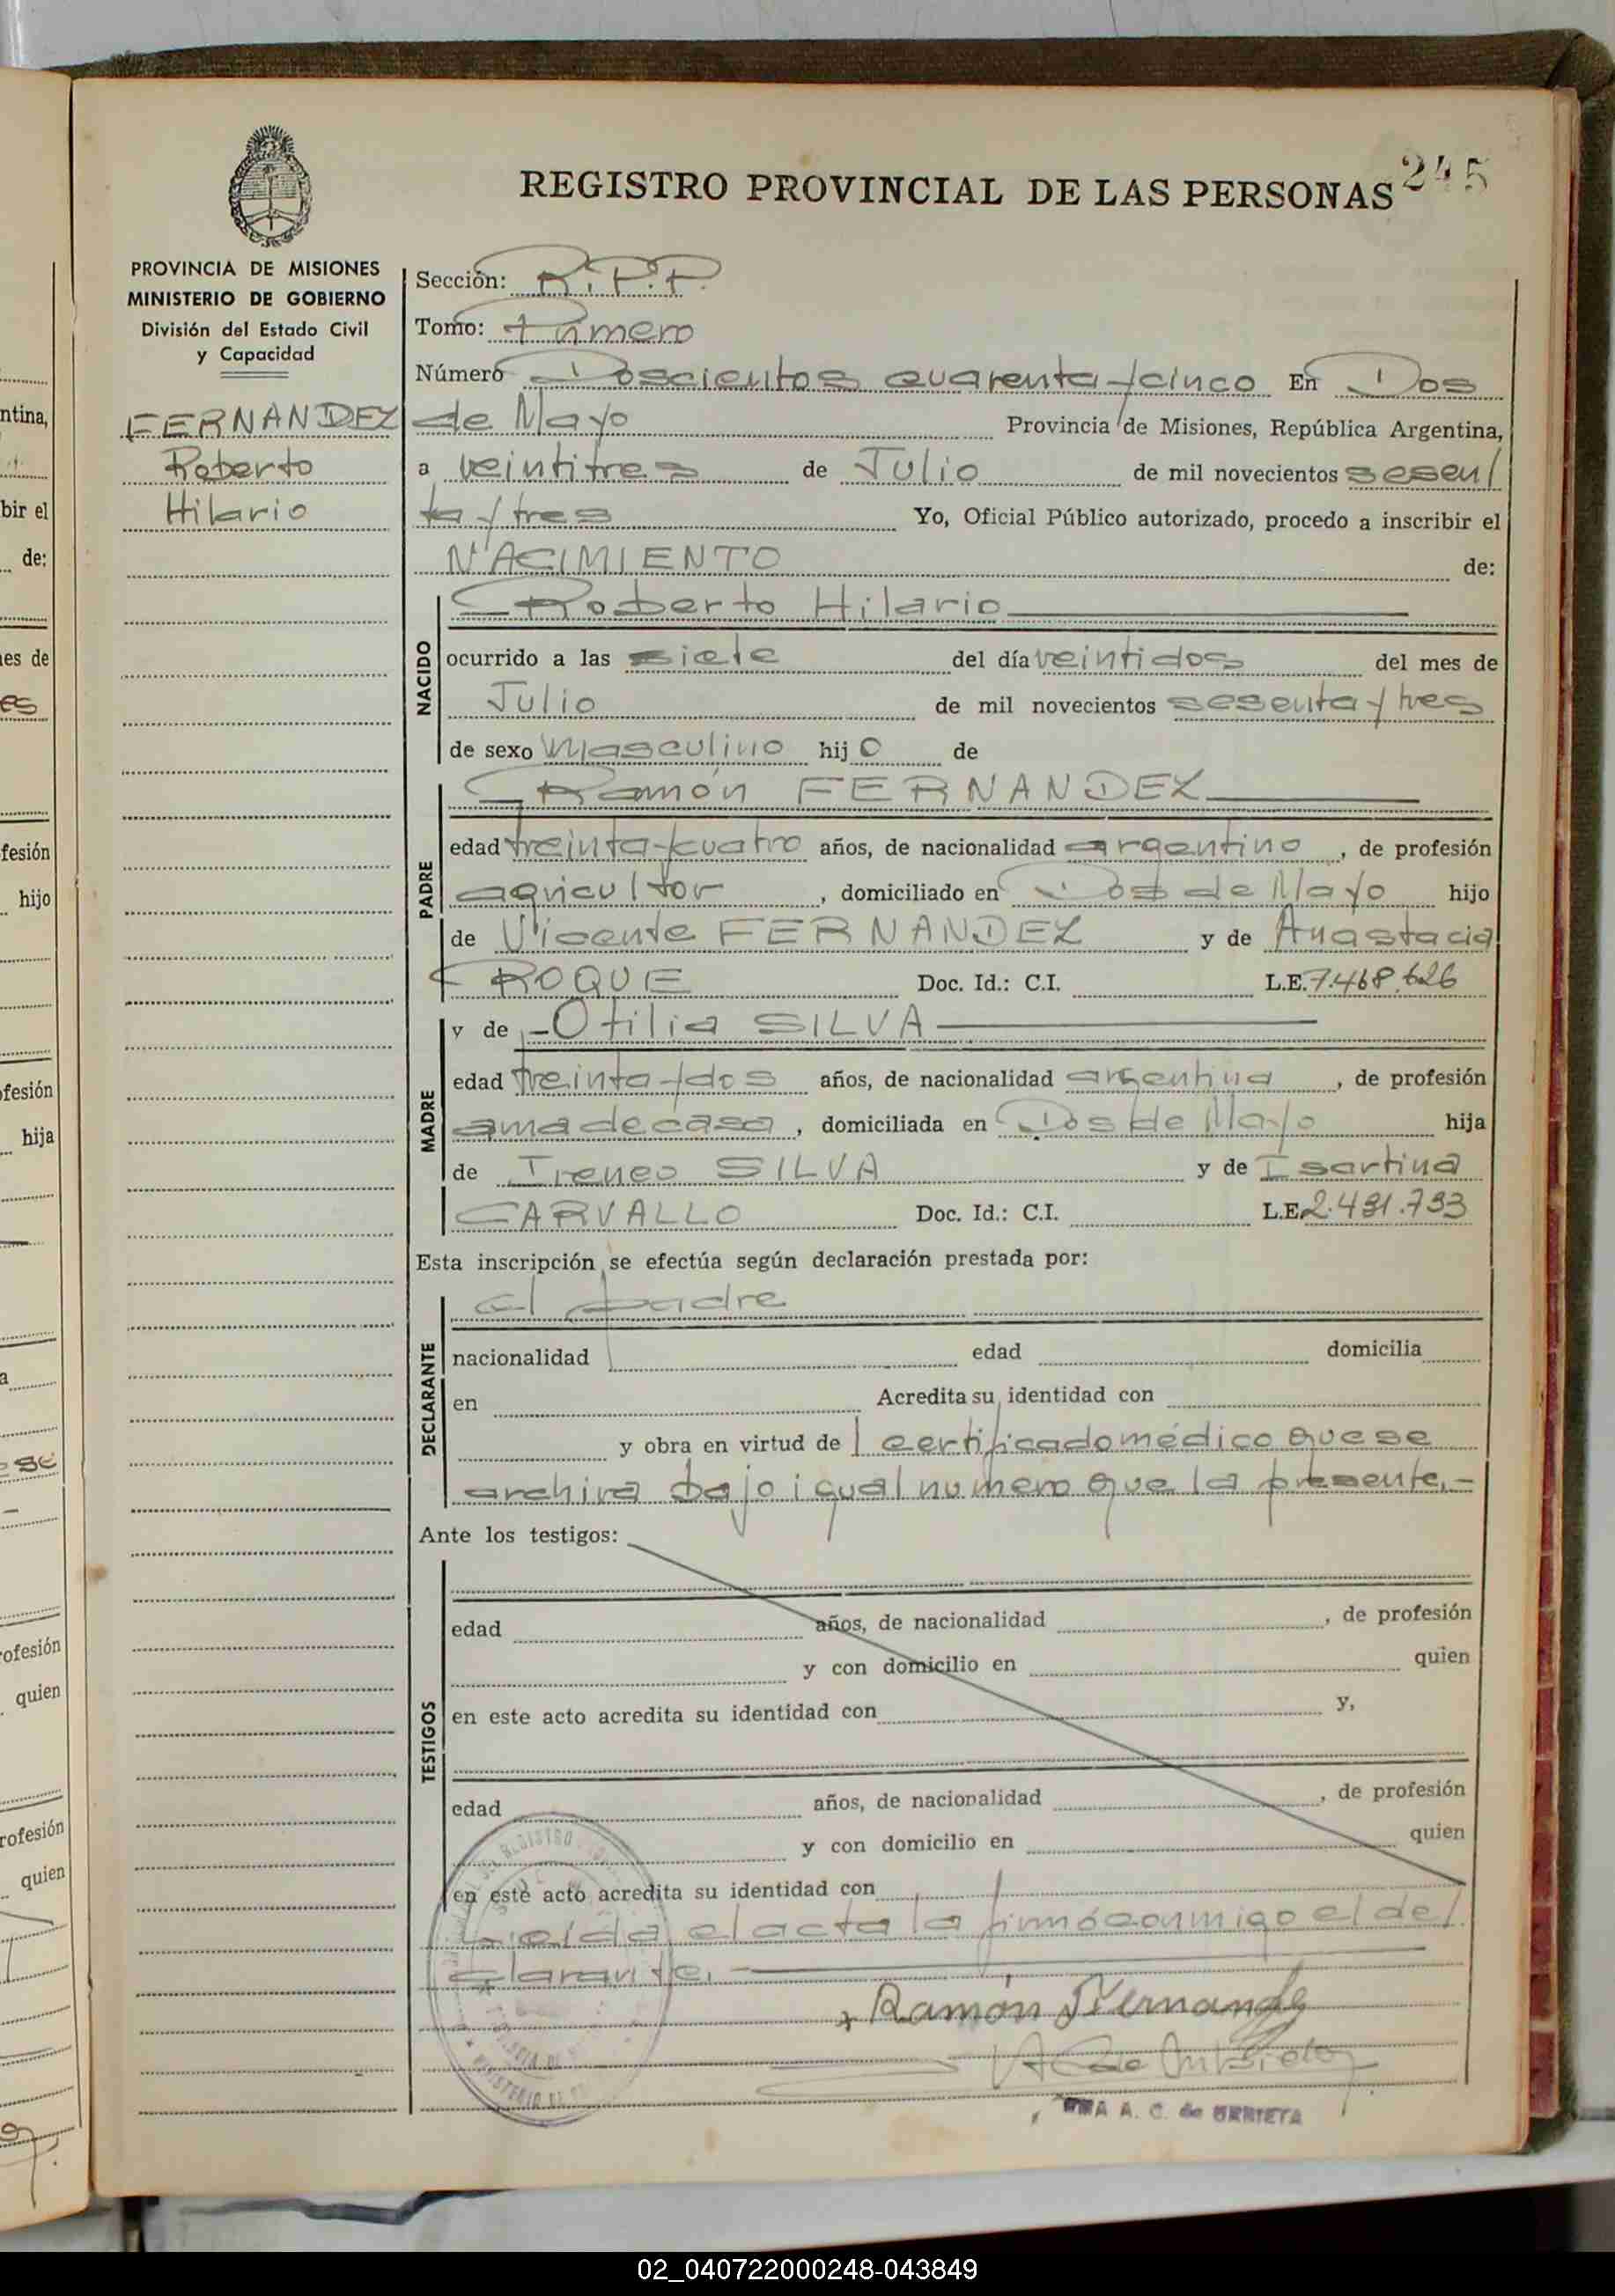 245
REGISTRO PROVINCIAL DE LAS PERSONAS
PROVINCIA DE MISIONES
MINISTERIO DE GOBIERNO
División del Estado Civil
y Capacidad
FERNANDEZ
Roberto
Hilario
Sección: R.P.P.
Tomo: Primero
Número Doscientos cuarenta y cinco En Dos
de Mayo Provincia de Misiones, República Argentina,
a veintitres de Julio de mil novecientos sesen/
ta y tres Yo, Oficial Público autorizado, procedo a inscribir el
NACIMIENTO de:
NACIDO
Roberto Hilario
ocurrido a las siete del día veintidos del mes de
Julio de mil novecientos sesenta y tres
de sexo masculino hijo de
PADRE
Ramón FERNANDEZ
edad treinta y cuatro años, de nacionalidad argentino, de profesión
agricultor, domiciliado en Dos de Mayo hijo
de Vicente FERNANDEZ y de Anastacia
ROQUE Doc. Id.: C.I. L.E. 7.468.626
MADRE
y de Otilia SILVA
edad treinta y dos años, de nacionalidad argentina, de profesión
ama de casa, domiciliada en Dos de Mayo hija
de Ireneo SILVA y de Isartina
CARVALLO Doc. Id.: C.I. L.E. 2.491.793
Esta inscripción se efectúa según declaración prestada por:
DECLARANTE
el padre
nacionalidad edad domicilia
en Acredita su identidad con
y obra en virtud de certificado médico que se
archiva bajo igual numero que la presente.-
Ante los testigos:
TESTIGOS
edad años, de nacionalidad , de profesión
y con domicilio en quien
en este acto acredita su identidad con y,
edad años, de nacionalidad , de profesión
y con domicilio en quien
en este acto acredita su identidad con
Leída el acta la firmó conmigo el de/
clarante.-
Ramón Fernandez
A. C. de URRIETA
ntina,
bir el
de:
es de
es
fesión
hijo
ofesión
hija
a
ofesión
quien
rofesión
quien
02_040722000248-043849